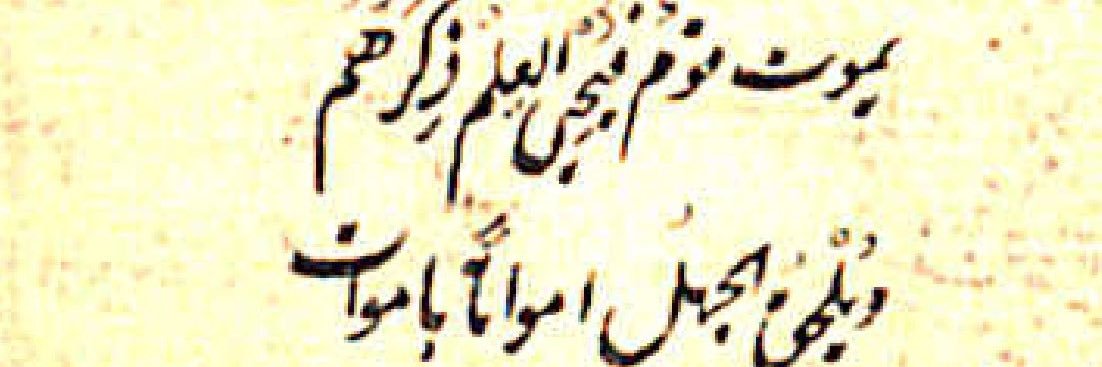 يموت قوم فيحيى العلم ذكرهم
ويلحق الجهل امواتاً باموات